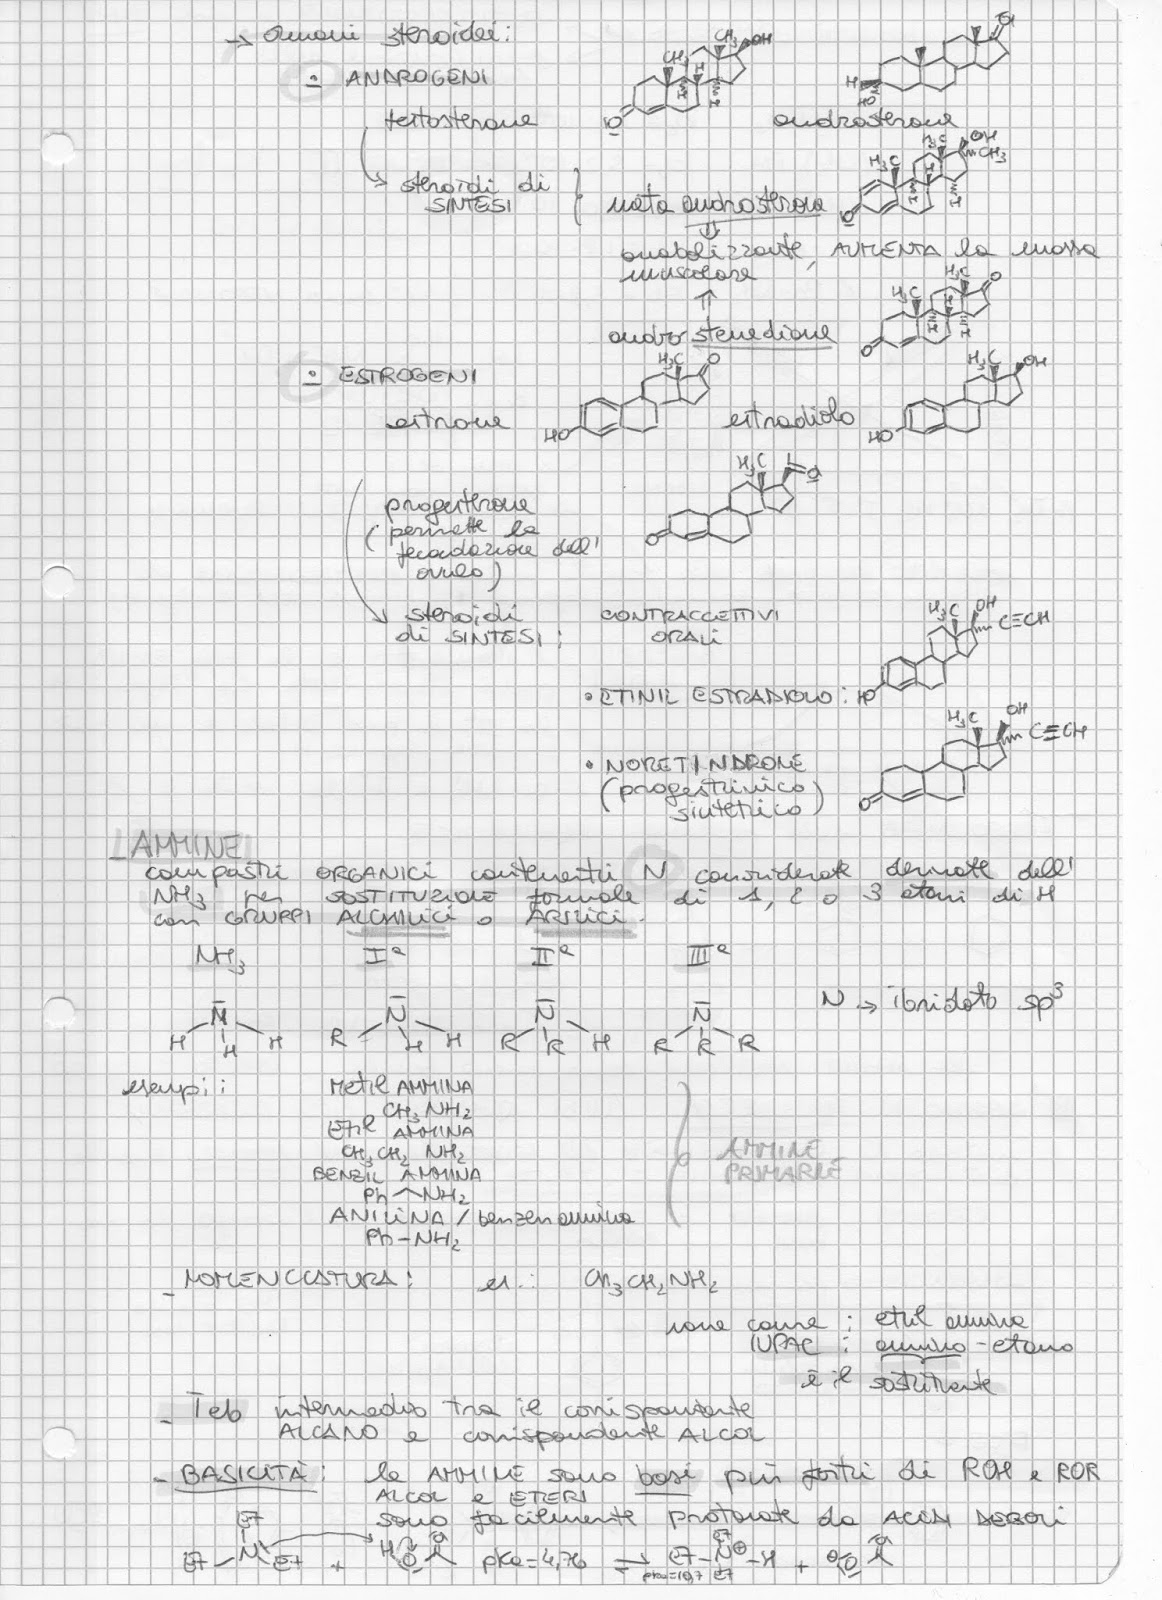 → Ormoni steroidei:
- ANDROGENI
testosterone
androsterone
steroidi di
SINTESI
metandrosterone
⇓
anabolizzante, AUMENTA la massa
muscolare
⇑
androstenedione
- ESTROGENI
estrone
estradiolo
progesterone
(permette la
fecondazione dell'
ovulo)
steroidi
di SINTESI:
CONTRACCETTIVI
ORALI
• ETINIL ESTRADIOLO:
• NORETINDRONE
(progestinico
sintetico)
AMMINE
composti ORGANICI contenenti N considerate derivate dell'
NH3 per SOSTITUZIONE formale di 1, 2 o 3 atomi di H
con GRUPPI ALCHILICI o ARILICI.
NH3 Iª IIª IIIª
N → ibridato sp3
esempi:
Metil AMMINA
CH3 NH2
Etil AMMINA
CH3CH2 NH2
BENZIL AMMINA
Ph NH2
ANILINA / benzenammina
Ph-NH2
AMMINE
PRIMARIE
- NOMENCLATURA: es.: CH3CH2NH2
nome comune: etil ammina
IUPAC: ammino-etano
è il sostituente
- Teb intermedio tra il corrispondente
ALCANO e corrispondente ALCOL
- BASICITÀ: le AMMINE sono basi più forti di ROH e ROR
ALCOL e ETERI
sono facilmente protonate da ACIDI DEBOLI
pKa=4,76
pKa=10,7